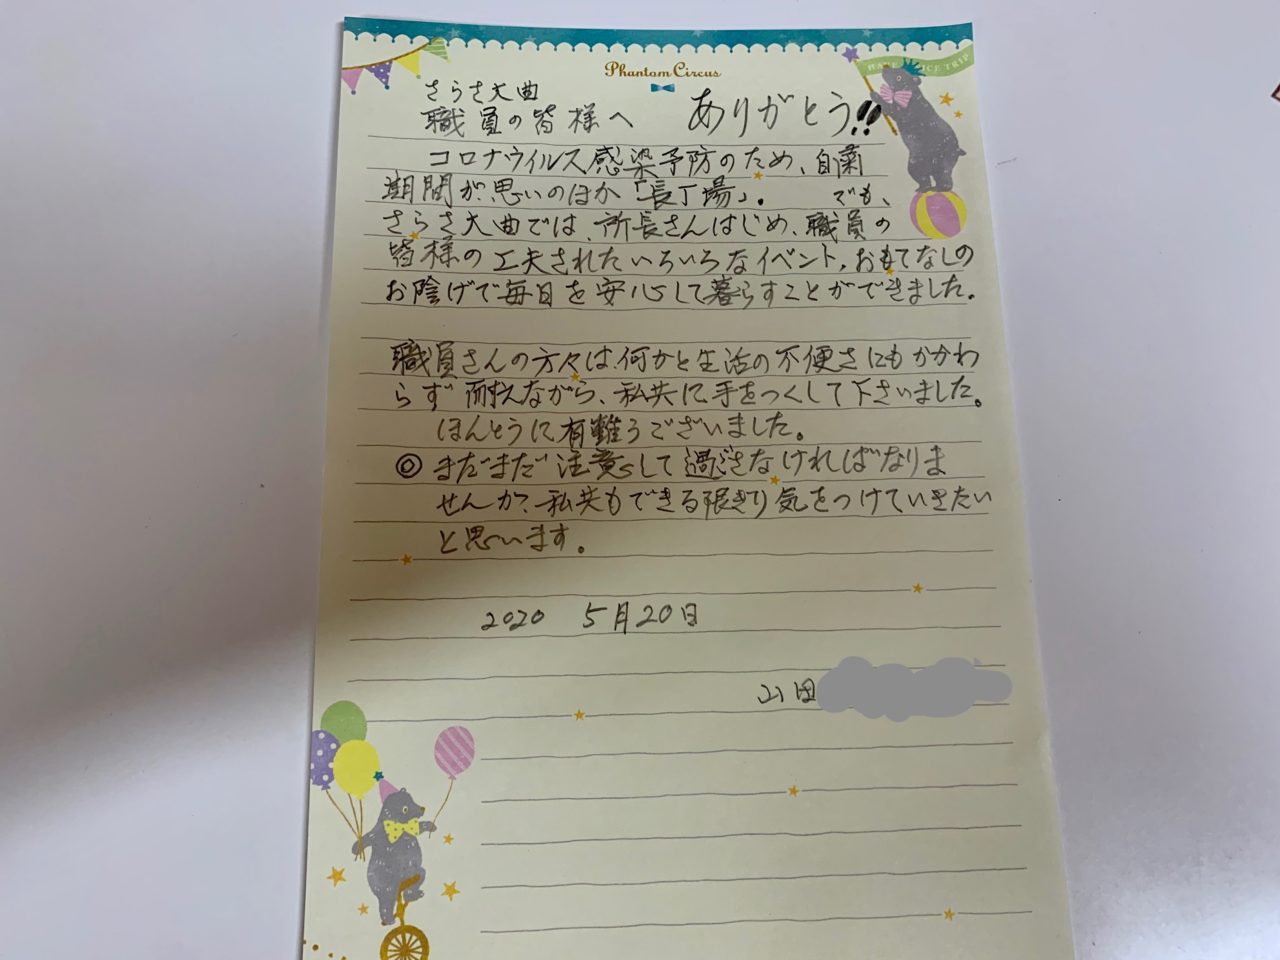 Phantom Circus
HAVE NICE TRIP
さらさ大曲
職員の皆様へ ありがとう!!
コロナウイルス感染予防のため、自粛
期間が思いのほか「長丁場」。 でも、
さらさ大曲では、所長さんはじめ、職員の
皆様の工夫されたいろいろなイベント,おもてなしの
お陰げで毎日を安心して暮らすことができました。
職員さんの方々は、何かと生活の不便さにもかかわ
らず 耐えながら、私共に手をつくして下さいました。
ほんとうに有難うございました。
◎ まだまだ注意して過ごさなければなりま
せんが、私共もできる限ぎり気をつけていきたい
と思います。
2020 5月20日
山田